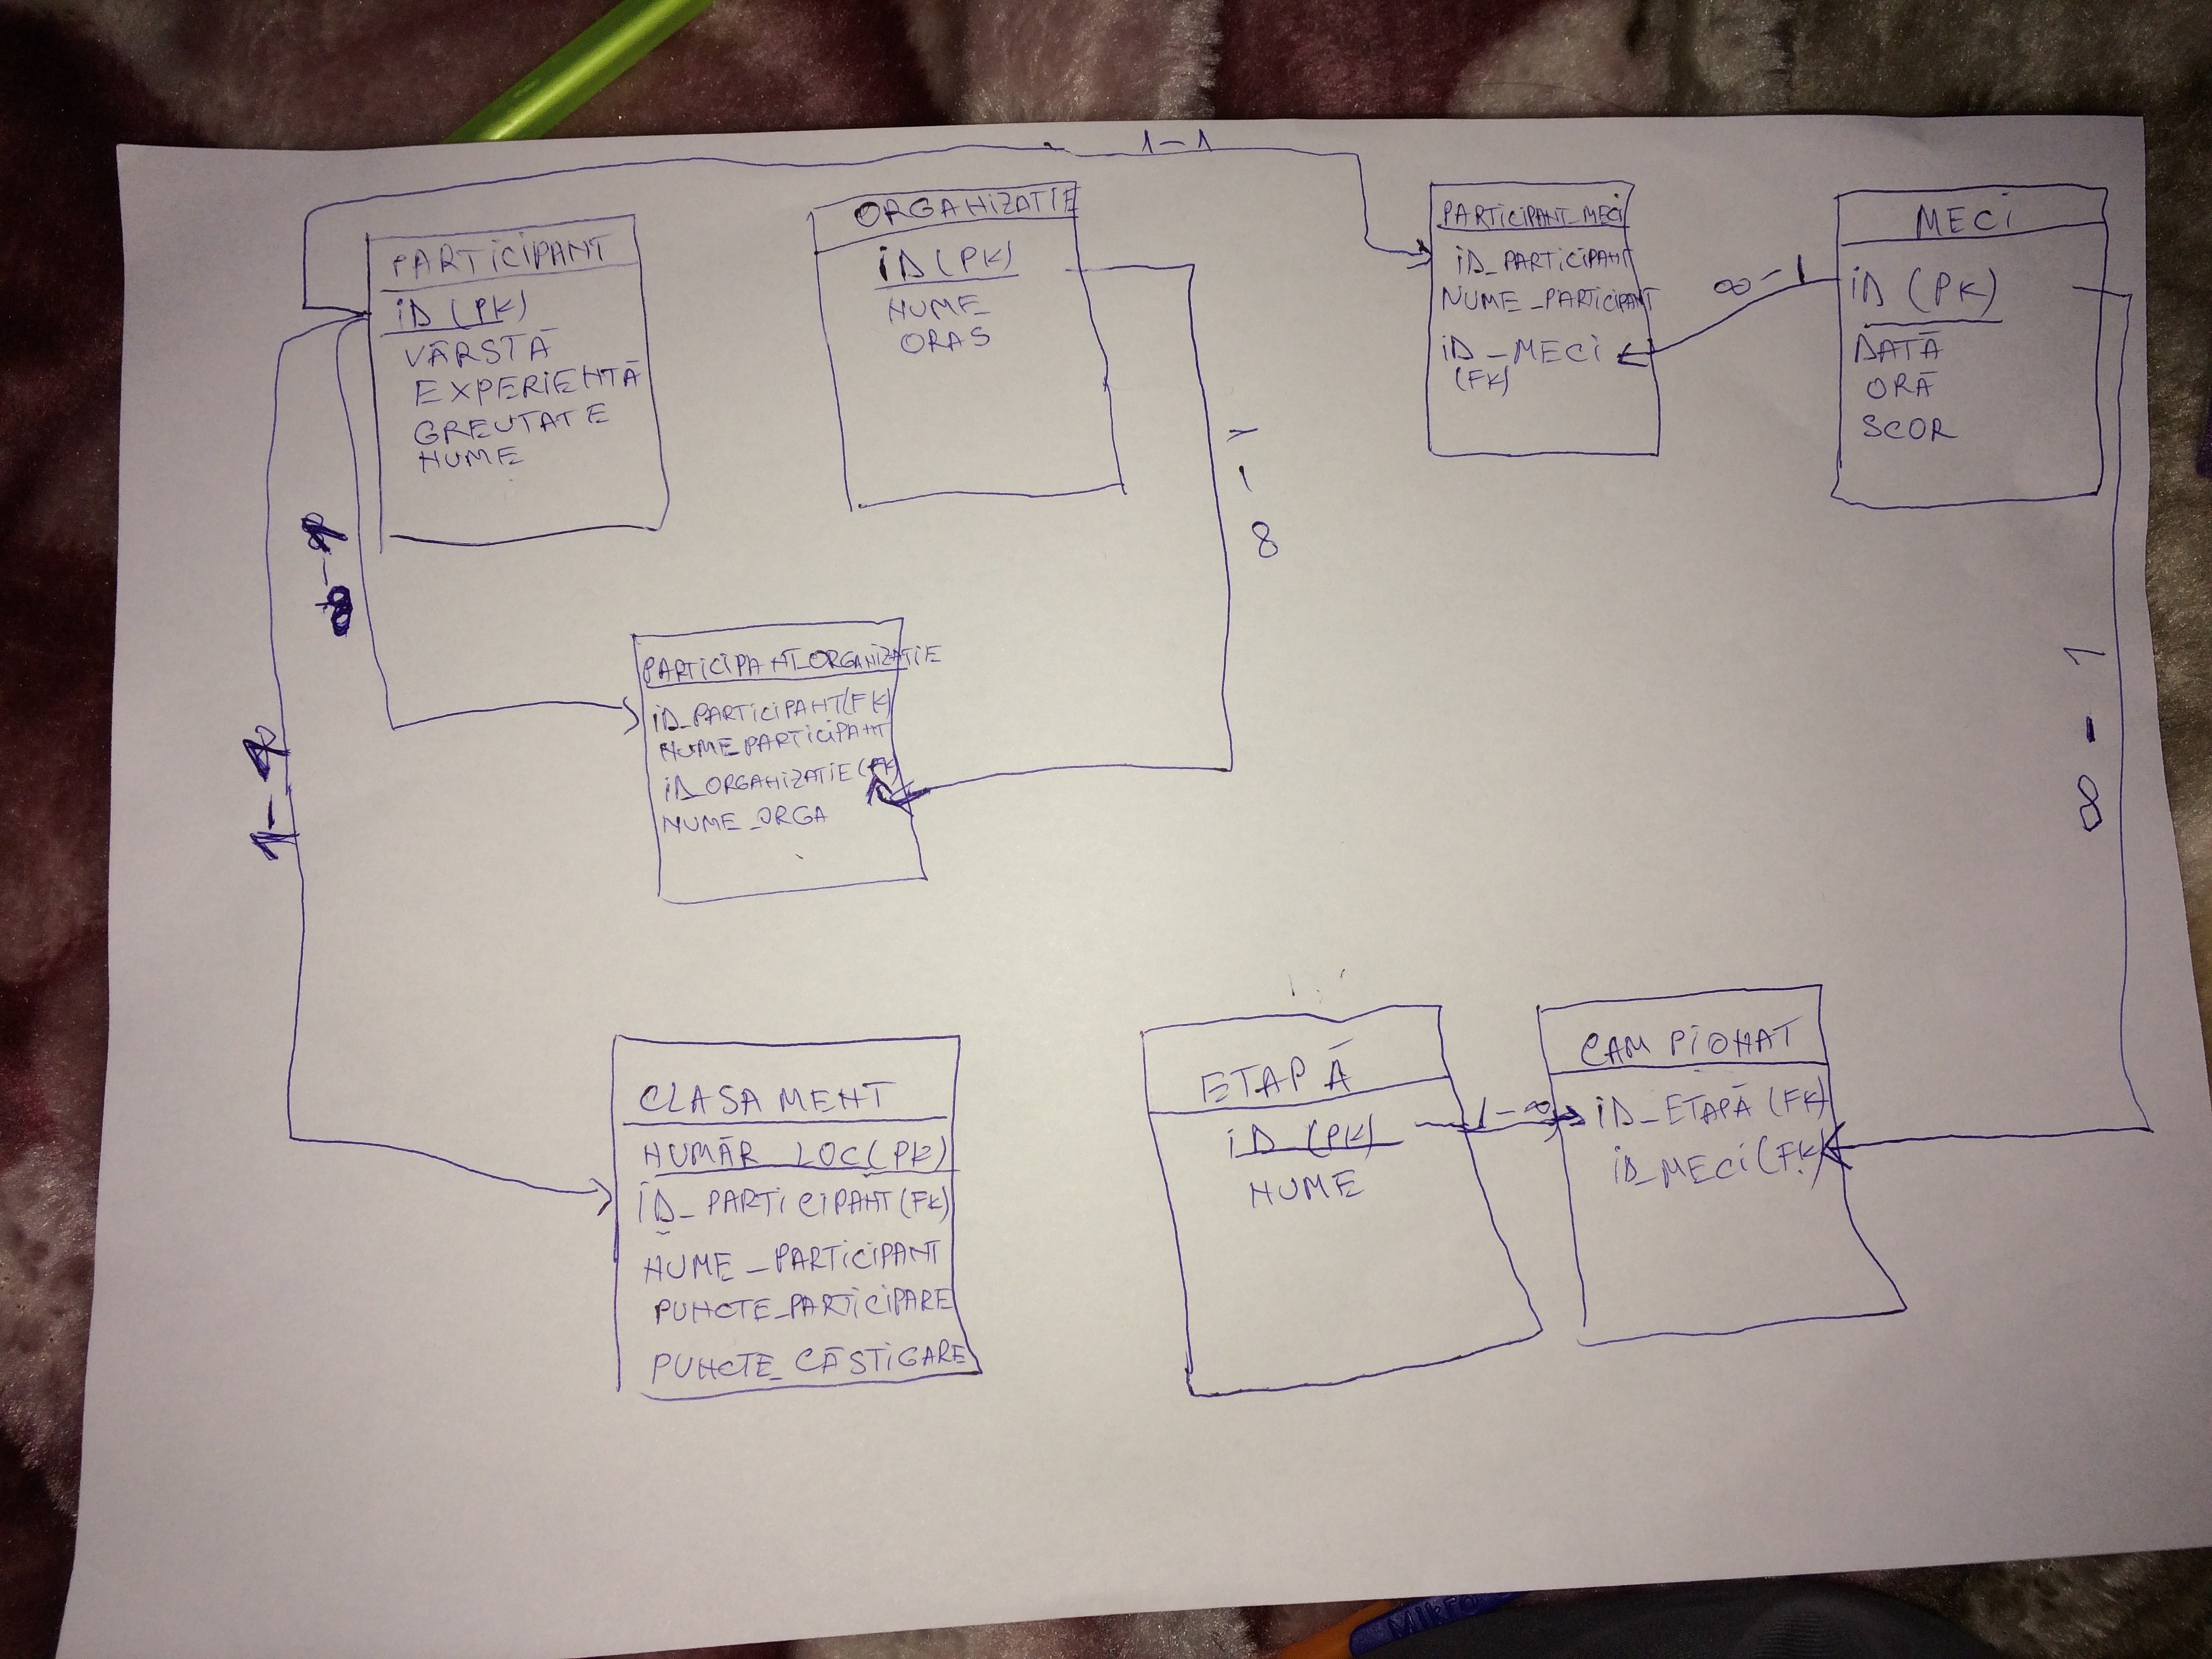 1-1
PARTICIPANT
ID (PK)
VÂRSTĂ
EXPERIENTĂ
GREUTATE
NUME
ORGANIZATIE
ID (PK)
NUME
ORAS
PARTICIPANT_MECI
ID_PARTICIPANT
NUME_PARTICIPANT
ID_MECI
(FK)
∞-1
MECI
ID (PK)
DATĂ
ORĂ
SCOR
1-∞
∞-1
PARTICIPANT_ORGANIZATIE
ID_PARTICIPANT(FK)
NUME_PARTICIPANT
ID_ORGANIZATIE(FK)
NUME_ORGA
CLASAMENT
NUMĂR_LOC(PK)
ID_PARTICIPANT(FK)
NUME_PARTICIPANT
PUNCTE_PARTICIPARE
PUNCTE_CÂSTIGARE
ETAPĂ
ID (PK)
NUME
1-∞
CAMPIONAT
ID_ETAPĂ (FK)
ID_MECI (FK)
Mikro